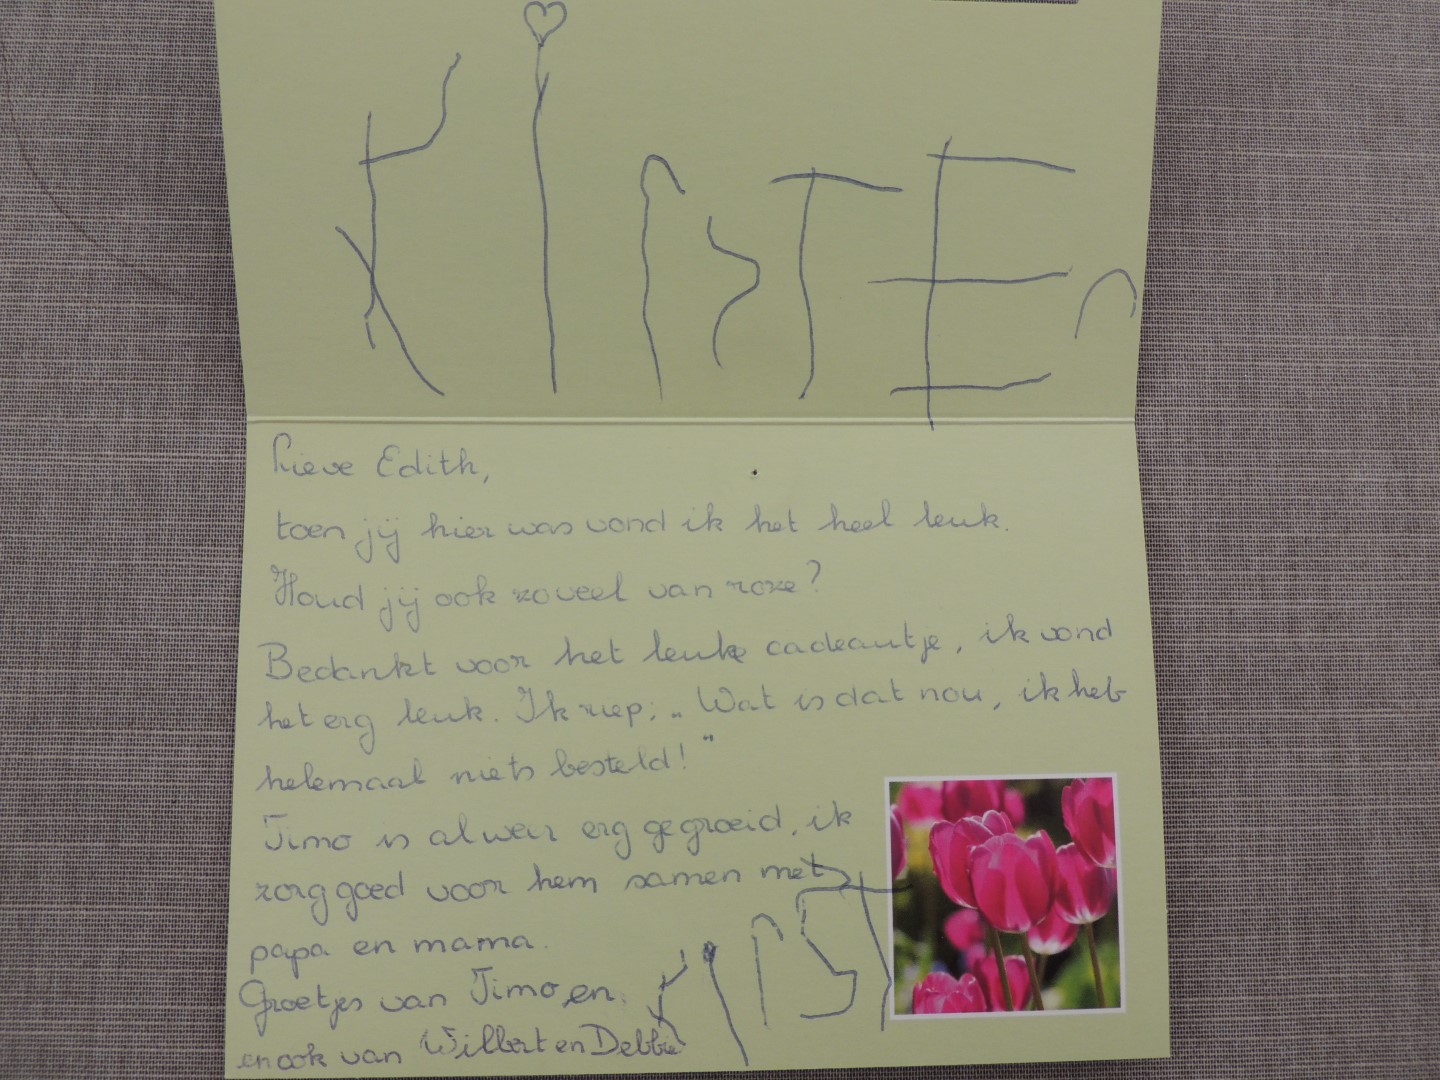 KirsTEn
Lieve Edith,
toen jij hier was vond ik het heel leuk.
Houd jij ook zoveel van roze?
Bedankt voor het leuke cadeautje, ik vond
het erg leuk. Ik riep: „Wat is dat nou, ik heb
helemaal niets besteld!"
Timo is al weer erg gegroeid, ik
zorg goed voor hem samen met
papa en mama.
Groetjes van Timo en KirsT
en ook van Wilbert en Debbie